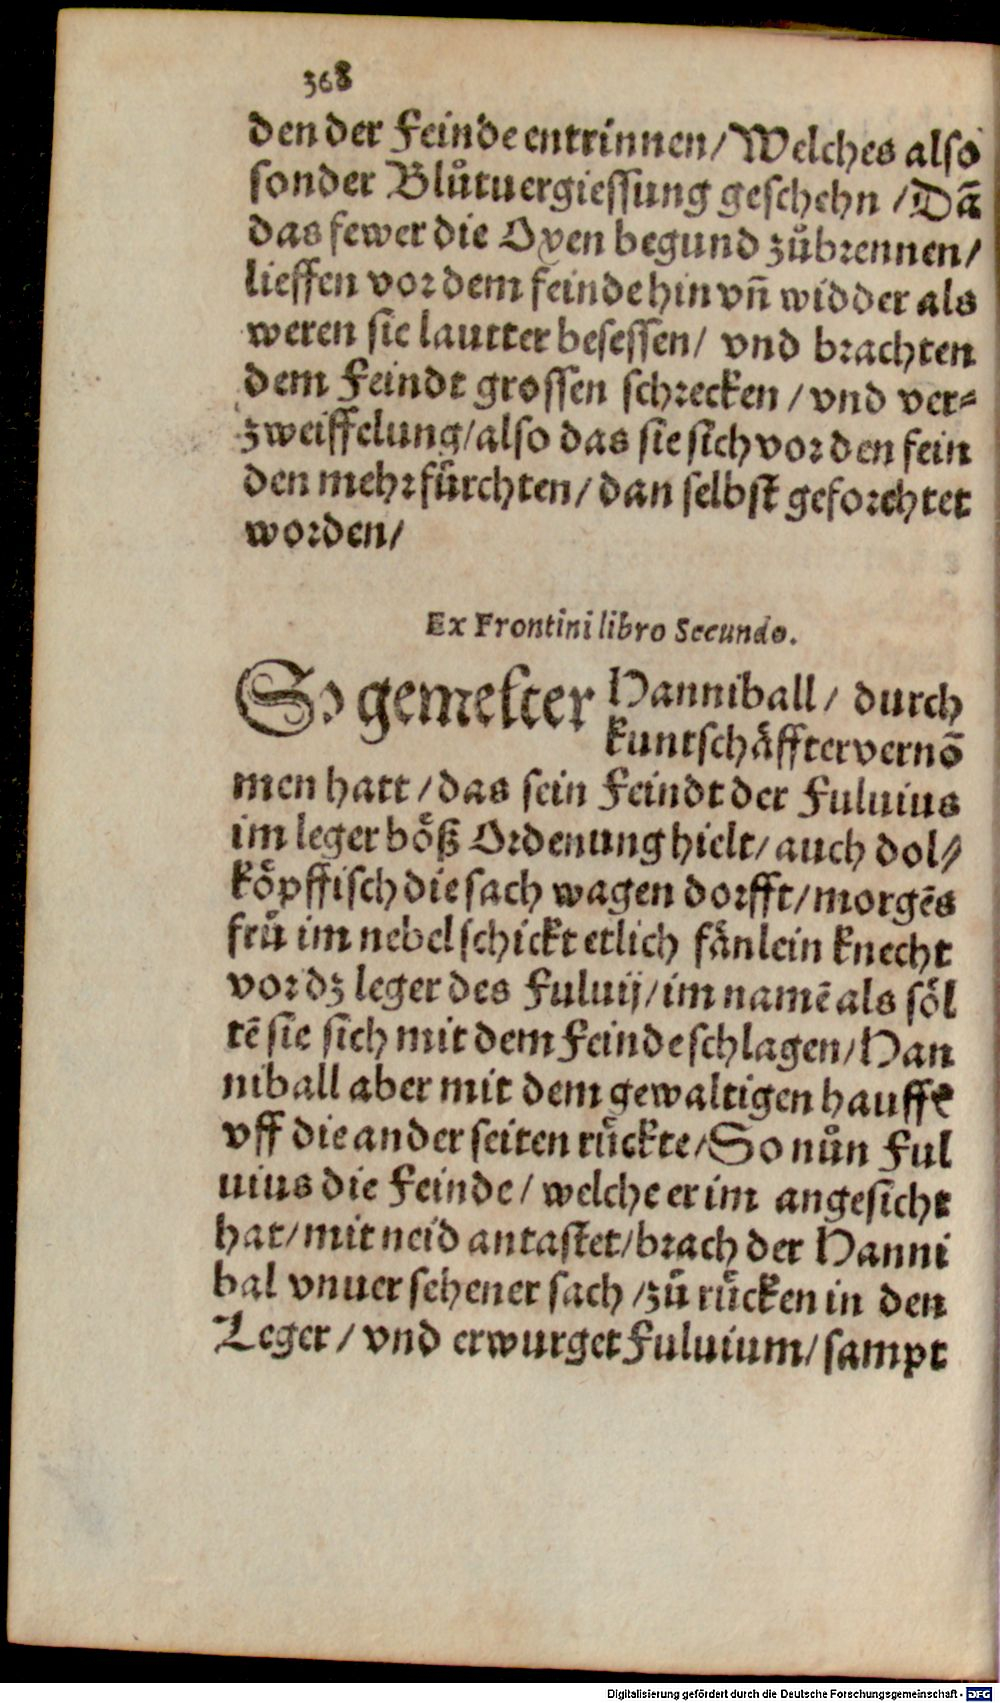 368
den der Feinde entrinnen/ Welches also
sonder Blůtuergiessung geschehn / Dā
das fewer die Oxen begund zůbrennen/
lieffen vor dem feinde hin vn̄ widder als
weren sie lautter besessen/ vnd brachten
dem Feindt grossen schrecken / vnd ver-
zweiffelung/ also das sie sich vor den fein
den mehr fürchten/ dan selbst geforchtet
worden/
Ex Frontini libro Secundo.
So gemelter Hanniball / durch
kuntschäffter vernō
men hatt / das sein Feindt der Fuluius
im leger böß Ordenung hielt/ auch dol-
köpffisch die sach wagen dorfft/ morgēs
frü im nebel schickt etlich fänlein knecht
vor dz leger des Fuluij/ im namē als söl
tē sie sich mit dem Feinde schlagen/ Han
niball aber mit dem gewaltigen hauffē
vff die ander seiten rückte/ So nůn Ful
uius die Feinde / welche er im angesicht
hat/ mit neid antastet/ brach der Hanni
bal vnuersehener sach / zů rücken in den
Leger / vnd erwurget Fuluium/ sampt
Digitalisierung gefördert durch die Deutsche Forschungsgemeinschaft - DFG